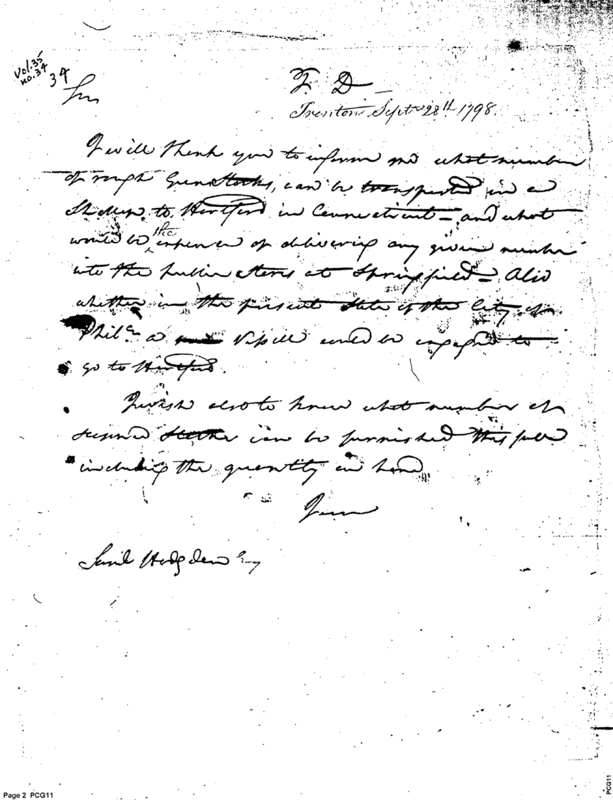 Vol. 35
no. 34
34
T. D
Sir
Trenton Septr 28th 1798.
I will thank you to inform me what number
of rough Gunstocks, can be transported in a
to Hartford in Connecticut – and what
would be the expence of delivering any given number
into the public stores at Springfield – Also
whether in the present state of the City of
Phila a Vessell could be engaged to
go to Hartford.
I wish also to know what number of
can be furnished this
including the quantity on hand
I am
Saml Hodgdon Esq
Page 2 PCG11
PCG11